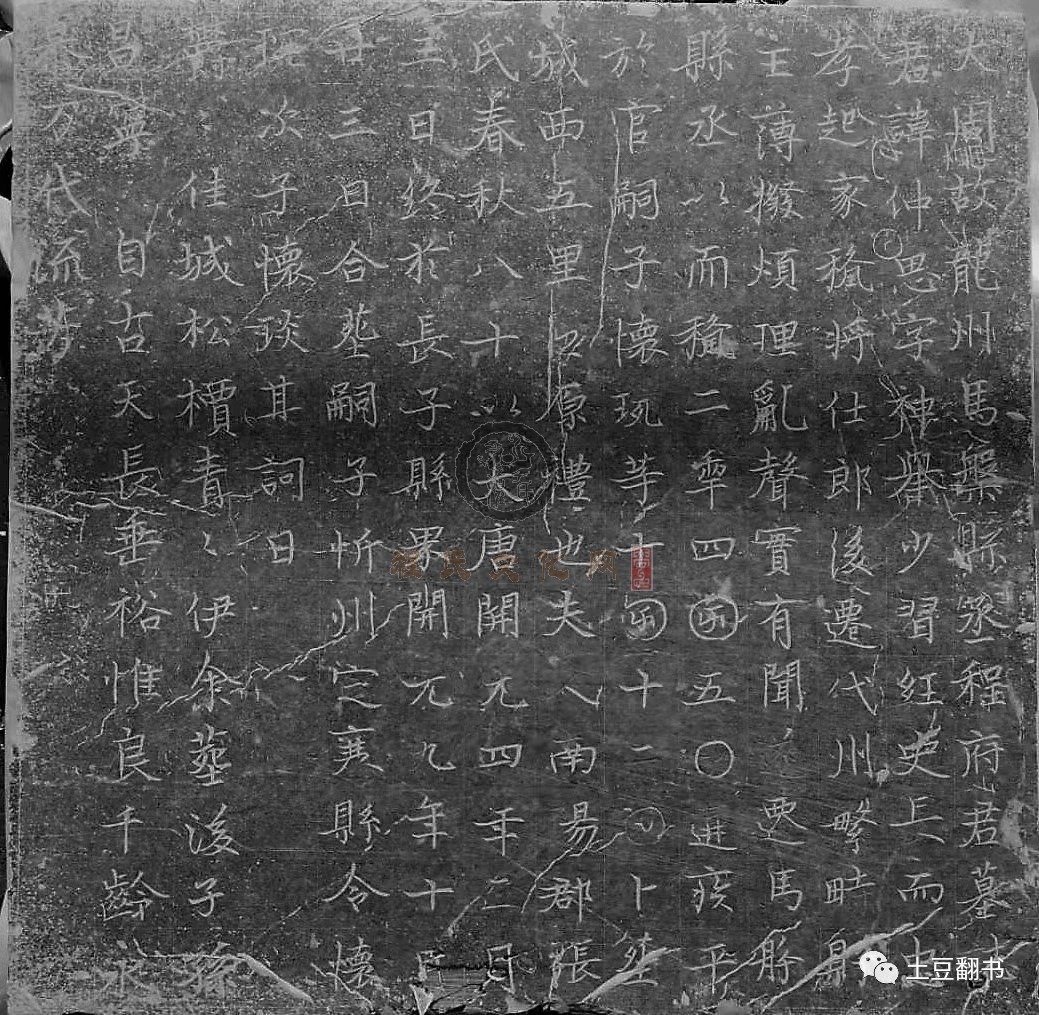 大周故龍州馬盤縣丞程府君墓誌
君諱仲思字神舉少習經史長而忠
孝起家稱將仕郎後遷代州繁畤縣
主薄撥煩理亂聲實有聞馬
縣丞以而稱二年四囝五〇遘疾卒
於官嗣子懷玩等十囝二十二卜塋
城西五里原禮也夫人南昜郡張
氏春秋八十以大唐開元四年二月
五日終於長子縣界開元九年十月
廿三日合葬嗣子忻州定襄縣令懷
次子懷琰其詞曰
佳城松檟青〻伊余葬後子孫
昌寧自古天長垂裕惟良千齡永
万代流芳
土豆翻书